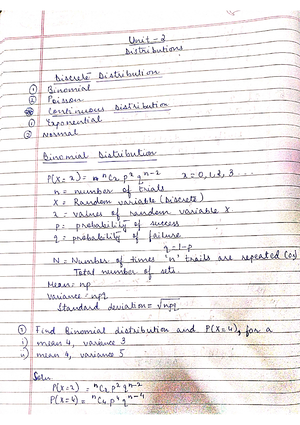 Unit-2
Distributions
Discrete Distribution
① Binomial
② Poisson
Continuous Distribution
① Exponential
② Normal
Binomial Distribution
P(X=x) = ⁿCₓ pˣ qⁿ⁻ˣ x = 0,1,2,3...
n = number of trials
X = Random variable (Discrete)
x = values of random variable X
p = probability of success
q = probability of failure
q = 1-p
N = Number of times 'n' trails are repeated (or)
Total number of sets.
Mean = np
variance = npq
Standard deviation = √npq
① Find Binomial distribution and P(X=4), for a
i) mean 4, variance 3
ii) mean 4, variance 5
Soln
P(X=x) = ⁿCₓ pˣ qⁿ⁻ˣ
P(X=4) = ⁿC₄ p⁴ qⁿ⁻⁴